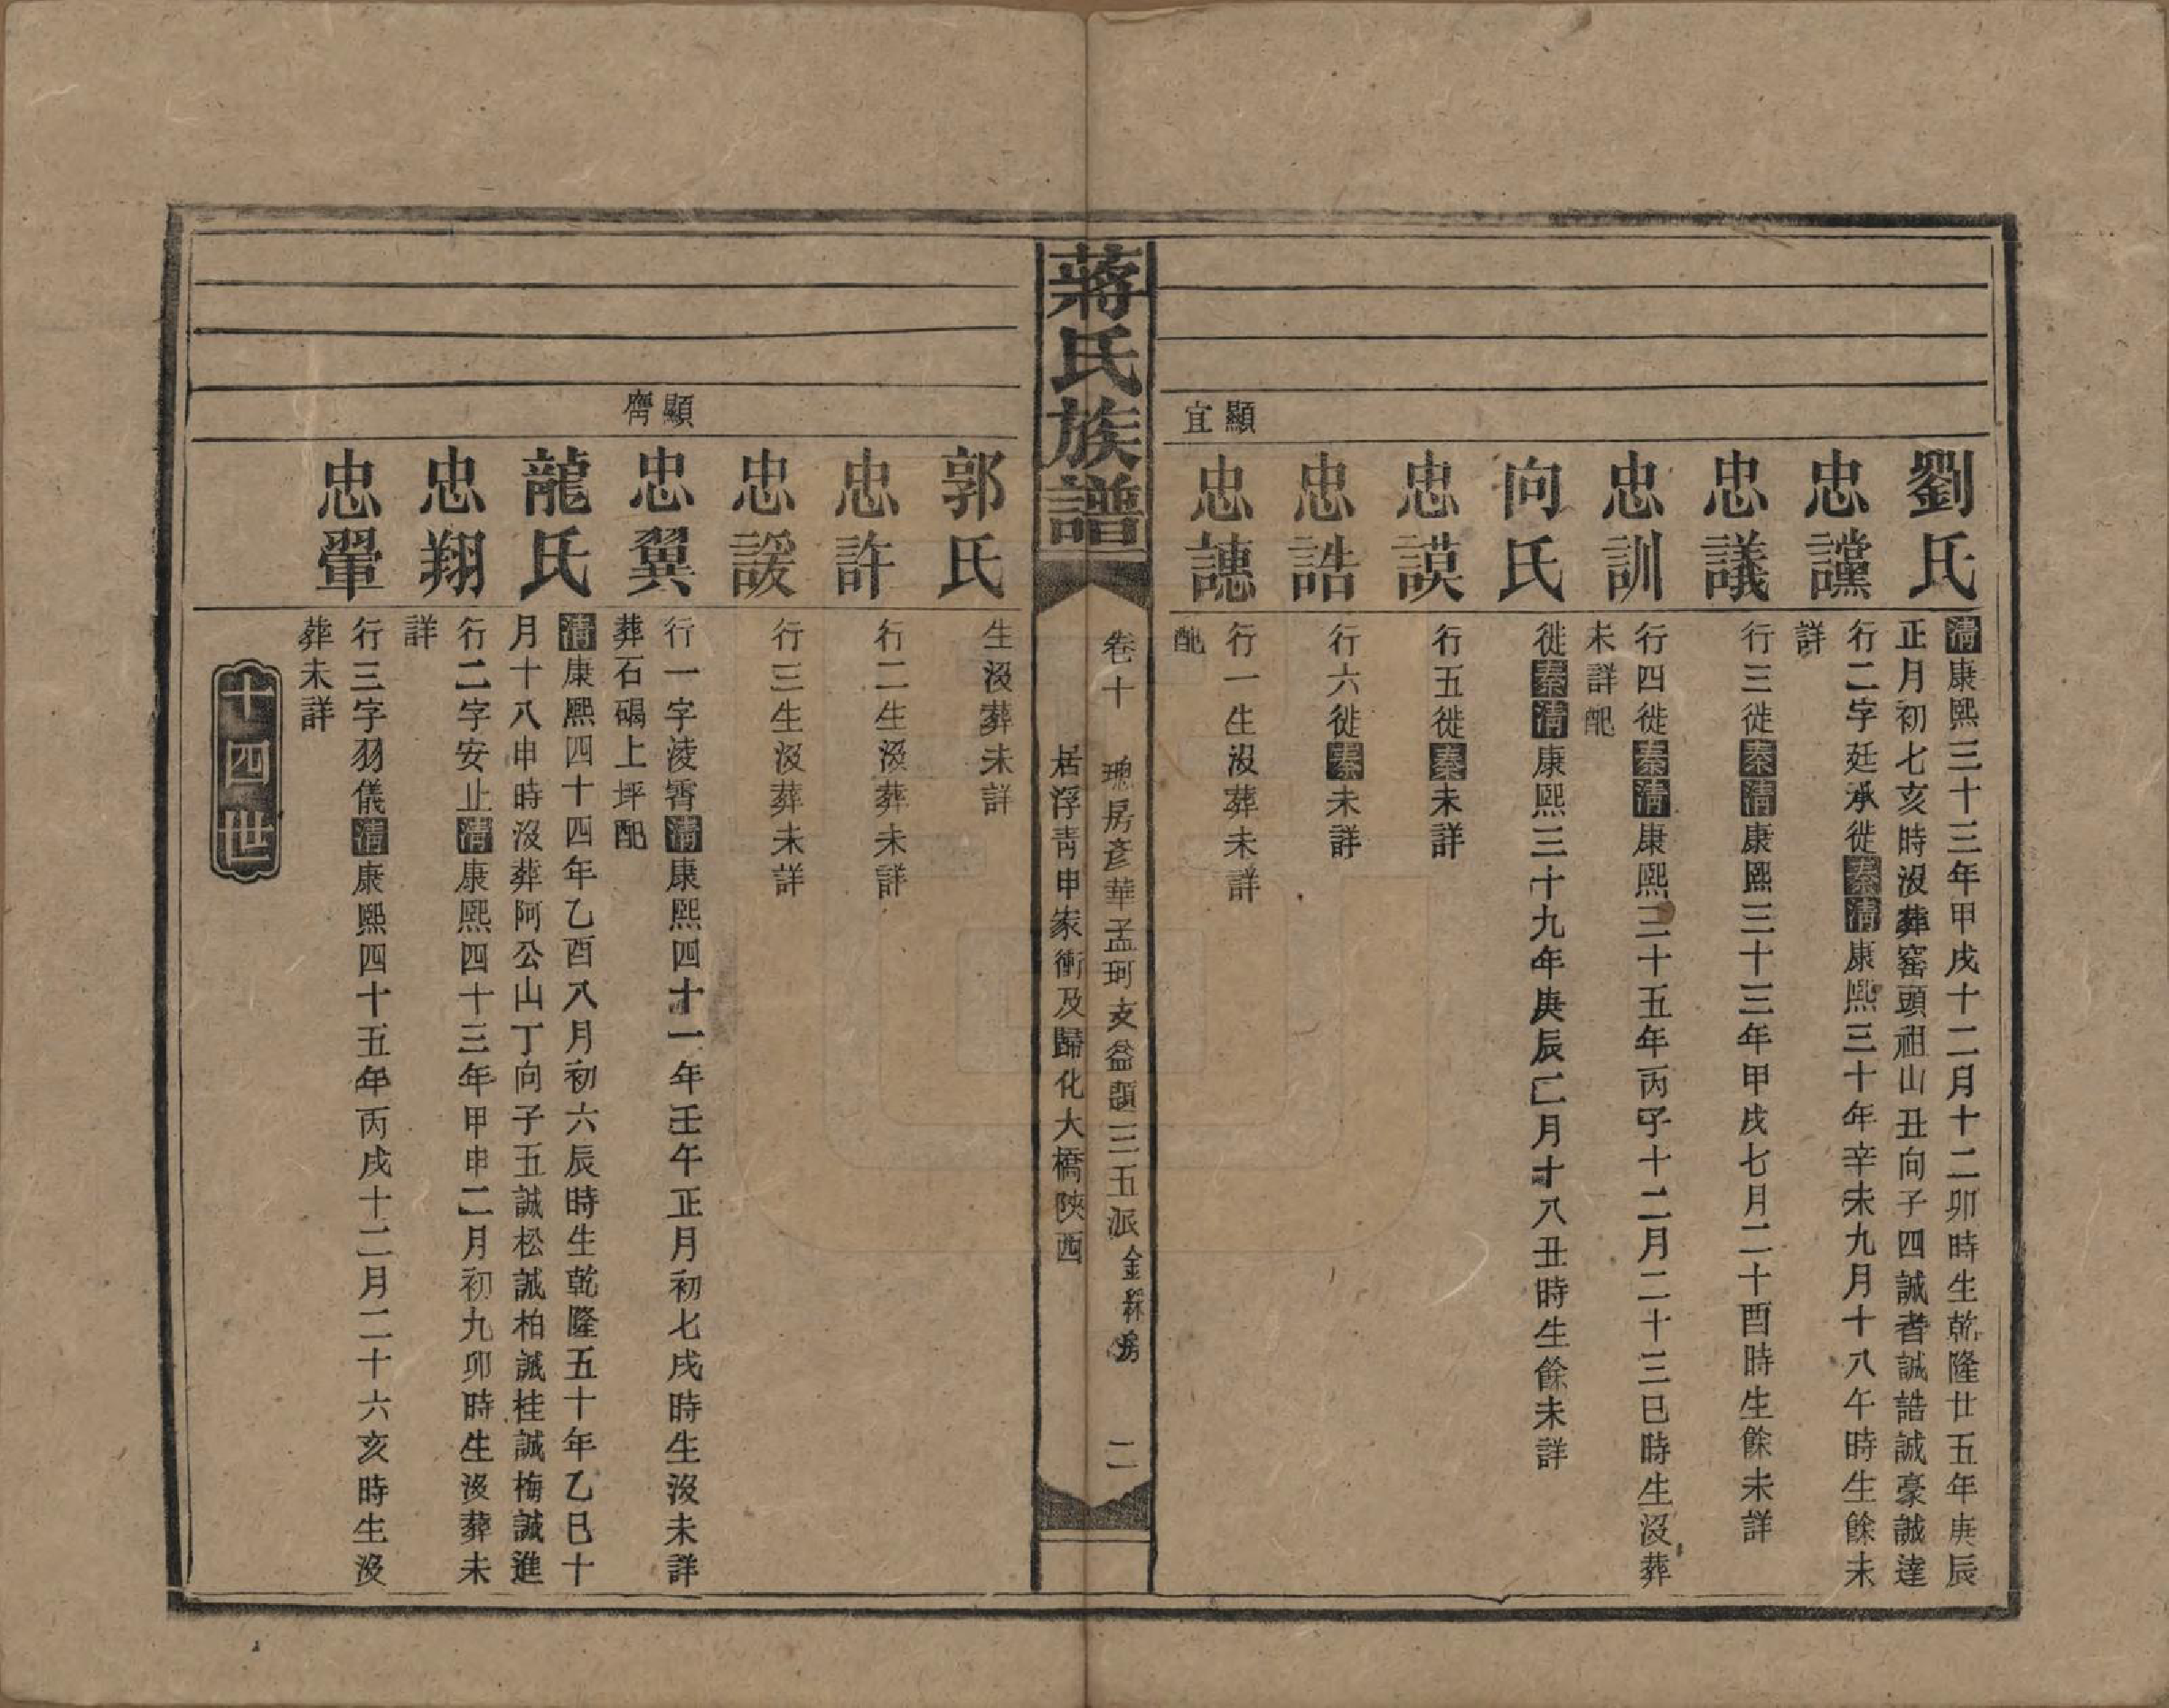 劉氏
清康熙三十三年甲戌十二月十二卯時生乾隆廿五年庚辰
正月初七亥時沒葬窰頭祖山丑向子四誠耆誠誥誠豪誠達
忠讜
行二字廷承徙秦清康熙三十年辛未九月十八午時生餘未
詳
忠議
行三徙秦清康熙三十三年甲戌七月二十酉時生餘未詳
忠訓
行四徙秦清康熙三十五年丙子十二月二十三巳時生沒葬
未詳配
向氏
徙秦清康熙三十九年庚辰二月十八丑時生餘未詳
忠謨
行五徙秦未詳
忠誥
行六徙秦未詳
顯宜
忠譓
行一生沒葬未詳
配
蔣氏族譜
卷十
璁房彥華孟珂支益顯三五派金繇房
居浮靑申家衝及歸化大橋陝西
二
郭氏
生沒葬未詳
忠許
行二生沒葬未詳
忠諼
行三生沒葬未詳
顯齊
忠翼
行一字淩霄清康熙四十一年壬午正月初七戌時生沒未詳
葬石碭上坪配
龍氏
清康熙四十四年乙酉八月初六辰時生乾隆五十年乙巳十
月十八申時沒葬阿公山丁向子五誠松誠柏誠桂誠梅誠進
忠翔
行二字安止清康熙四十三年甲申二月初九卯時生沒葬未
詳
忠翬
行三字羽儀清康熙四十五年丙戌十二月二十六亥時生沒
葬未詳
十四世